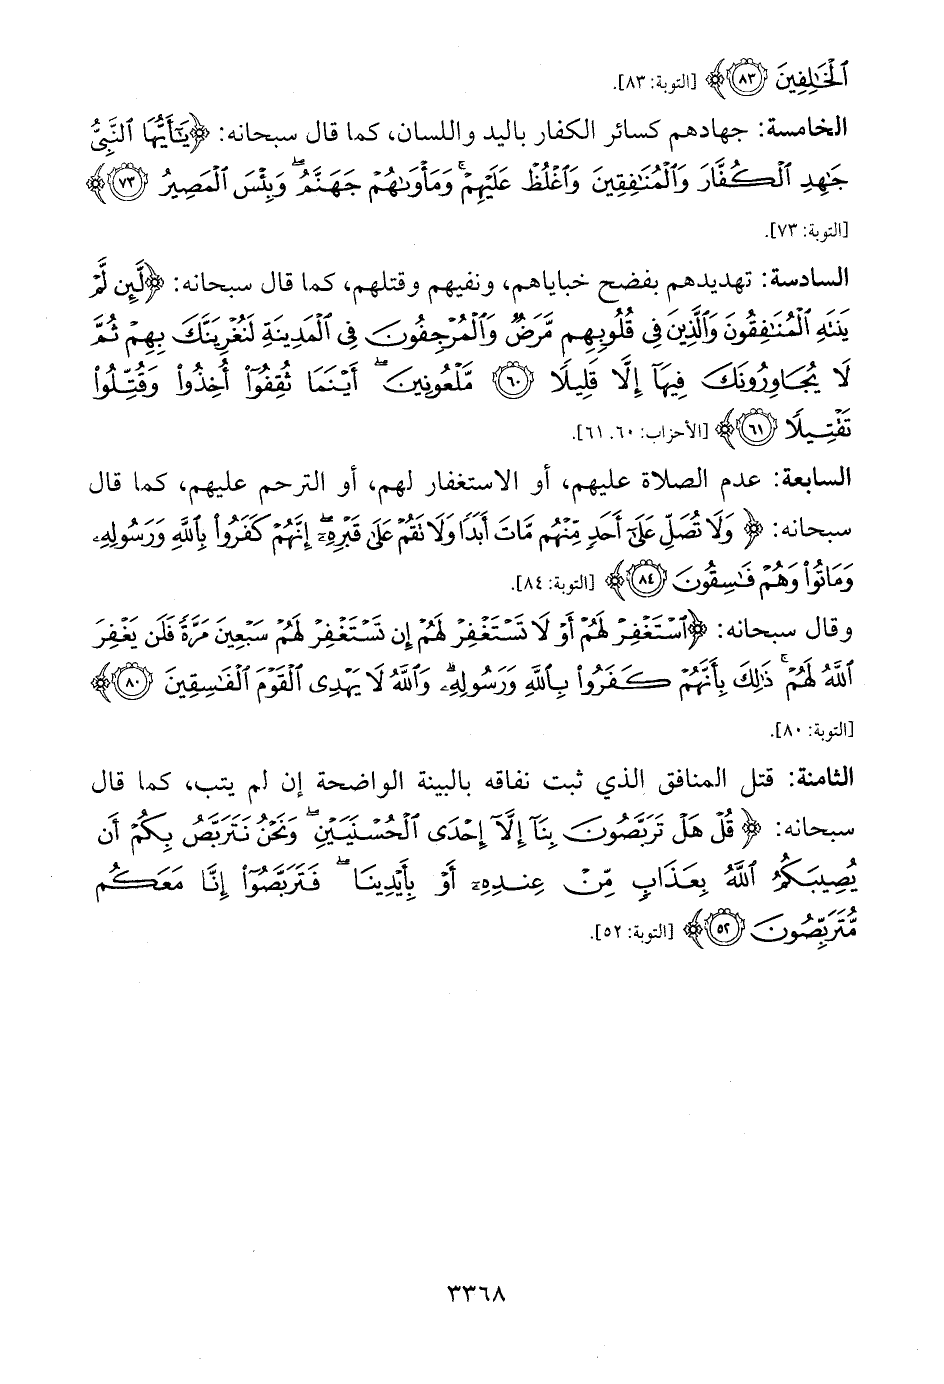 ٱلْخَٰلِفِينَ ﴿٨٣﴾ [التوبة: ٨٣].
الخامسة: جهادهم كسائر الكفار باليد واللسان، كما قال سبحانه: ﴿يَٰٓأَيُّهَا ٱلنَّبِيُّ
جَٰهِدِ ٱلْكُفَّارَ وَٱلْمُنَٰفِقِينَ وَٱغْلُظْ عَلَيْهِمْ ۚ وَمَأْوَىٰهُمْ جَهَنَّمُ ۖ وَبِئْسَ ٱلْمَصِيرُ ﴿٧٣﴾
[التوبة: ٧٣].
السادسة: تهديدهم بفضح خباياهم، ونفيهم وقتلهم، كما قال سبحانه: ﴿لَّئِن لَّمْ
يَنتَهِ ٱلْمُنَٰفِقُونَ وَٱلَّذِينَ فِى قُلُوبِهِم مَّرَضٌ وَٱلْمُرْجِفُونَ فِى ٱلْمَدِينَةِ لَنُغْرِيَنَّكَ بِهِمْ ثُمَّ
لَا يُجَاوِرُونَكَ فِيهَآ إِلَّا قَلِيلًا ﴿٦٠﴾ مَّلْعُونِينَ ۖ أَيْنَمَا ثُقِفُوٓا۟ أُخِذُوا۟ وَقُتِّلُوا۟
تَقْتِيلًا ﴿٦١﴾ [الأحزاب: ٦٠، ٦١].
السابعة: عدم الصلاة عليهم، أو الاستغفار لهم، أو الترحم عليهم، كما قال
سبحانه: ﴿وَلَا تُصَلِّ عَلَىٰٓ أَحَدٍ مِّنْهُم مَّاتَ أَبَدًا وَلَا تَقُمْ عَلَىٰ قَبْرِهِۦٓ ۖ إِنَّهُمْ كَفَرُوا۟ بِٱللَّهِ وَرَسُولِهِۦ
وَمَاتُوا۟ وَهُمْ فَٰسِقُونَ ﴿٨٤﴾ [التوبة: ٨٤].
وقال سبحانه: ﴿ٱسْتَغْفِرْ لَهُمْ أَوْ لَا تَسْتَغْفِرْ لَهُمْ إِن تَسْتَغْفِرْ لَهُمْ سَبْعِينَ مَرَّةً فَلَن يَغْفِرَ
ٱللَّهُ لَهُمْ ۚ ذَٰلِكَ بِأَنَّهُمْ كَفَرُوا۟ بِٱللَّهِ وَرَسُولِهِۦ ۗ وَٱللَّهُ لَا يَهْدِى ٱلْقَوْمَ ٱلْفَٰسِقِينَ ﴿٨٠﴾
[التوبة: ٨٠].
الثامنة: قتل المنافق الذي ثبت نفاقه بالبينة الواضحة إن لم يتب، كما قال
سبحانه: ﴿قُلْ هَلْ تَرَبَّصُونَ بِنَآ إِلَّآ إِحْدَى ٱلْحُسْنَيَيْنِ ۖ وَنَحْنُ نَتَرَبَّصُ بِكُمْ أَن
يُصِيبَكُمُ ٱللَّهُ بِعَذَابٍ مِّنْ عِندِهِۦٓ أَوْ بِأَيْدِينَا ۖ فَتَرَبَّصُوٓا۟ إِنَّا مَعَكُم
مُّتَرَبِّصُونَ ﴿٥٢﴾ [التوبة: ٥٢].
٣٣٦٨